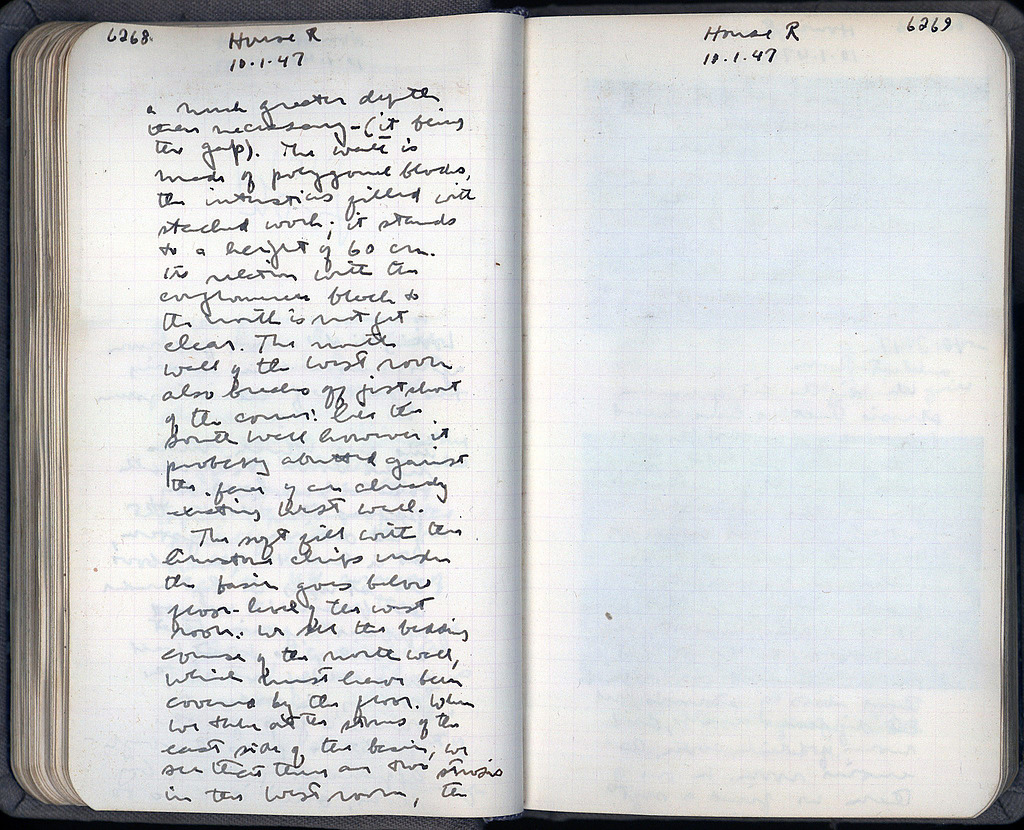 6268
House R
10.1.47
a much greater depth
than necessary - (it being
the gap). The wall is
made of polygonal blocks,
the interstices filled with
stacked work; it stands
to a height of 60 cm.
Its relation with the
conglomerate block to
the north is not yet
clear. The north
wall of the west room
also breaks off just short
of the corner: like the
south wall however it
probably abutted against
the face of an already
existing West wall.
The soft fill with the
limestone chips under
the basin goes below
floor-level of the west
room. We see the bedding
course of the north wall,
which must have been
covered by the floor. When
we take out the stones of the
east side of the basin, we
see that there are two strosis
in the West room, the
House R
10.1.47
6269